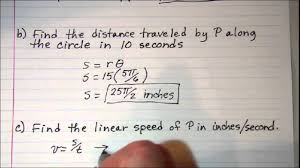 b) Find the distance traveled by P along
the circle in 10 seconds
s = r θ
s = 15 (5π/6)
s = 25π/2 inches
c) Find the linear speed of P in inches/second.
v = s/t →